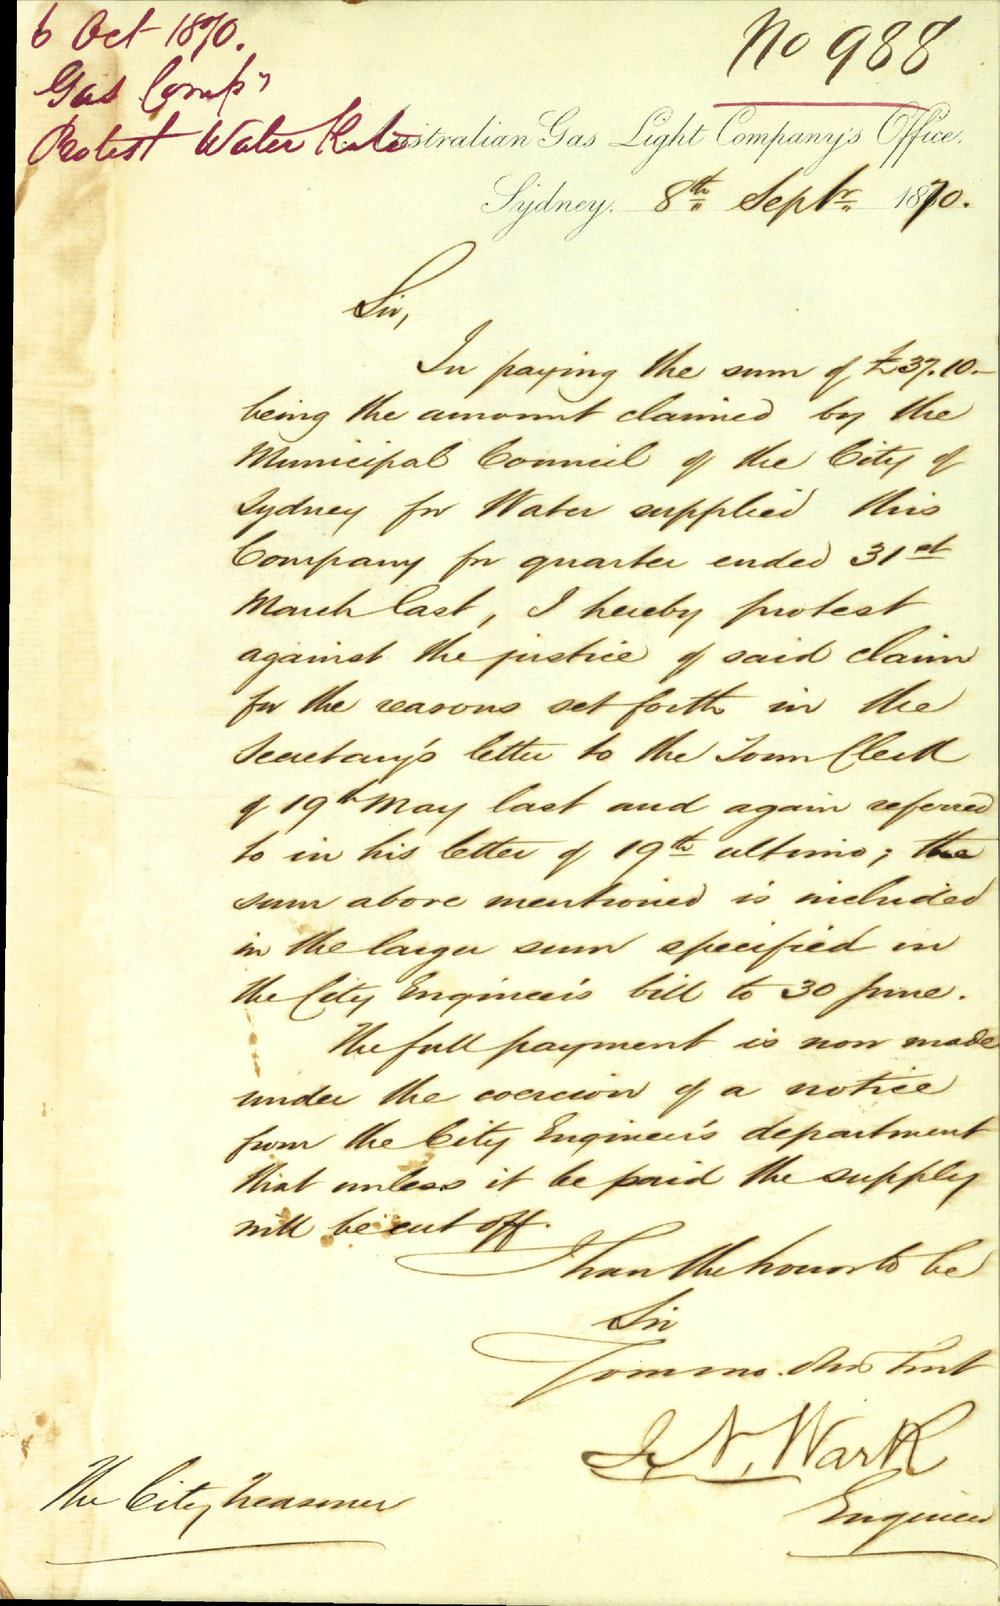 6 Oct 1870.
Gas Compy
Protest Water Rate
No 988
Australian Gas Light Company's Office.
Sydney. 8th Septr 1870.
Sir,
In paying the sum of £37.10.-
being the amount claimed by the
Municipal Council of the City of
Sydney for Water supplied this
Company for quarter ended 31st
March last, I hereby protest
against the justice of said claim
for the reasons set forth in the
Secretary's letter to the Town Clerk
of 19th May last and again referred
to in his letter of 19th ultimo; the
sum above mentioned is included
in the larger sum specified in
the City Engineer's bill to 30 June.
The full payment is now made
under the coercion of a notice
from the City Engineer's department
that unless it be paid the supply
will be cut off.
I have the honor to be
Sir
Your mo. obed Servt
J. N. Wark
Engineer
The City Treasurer